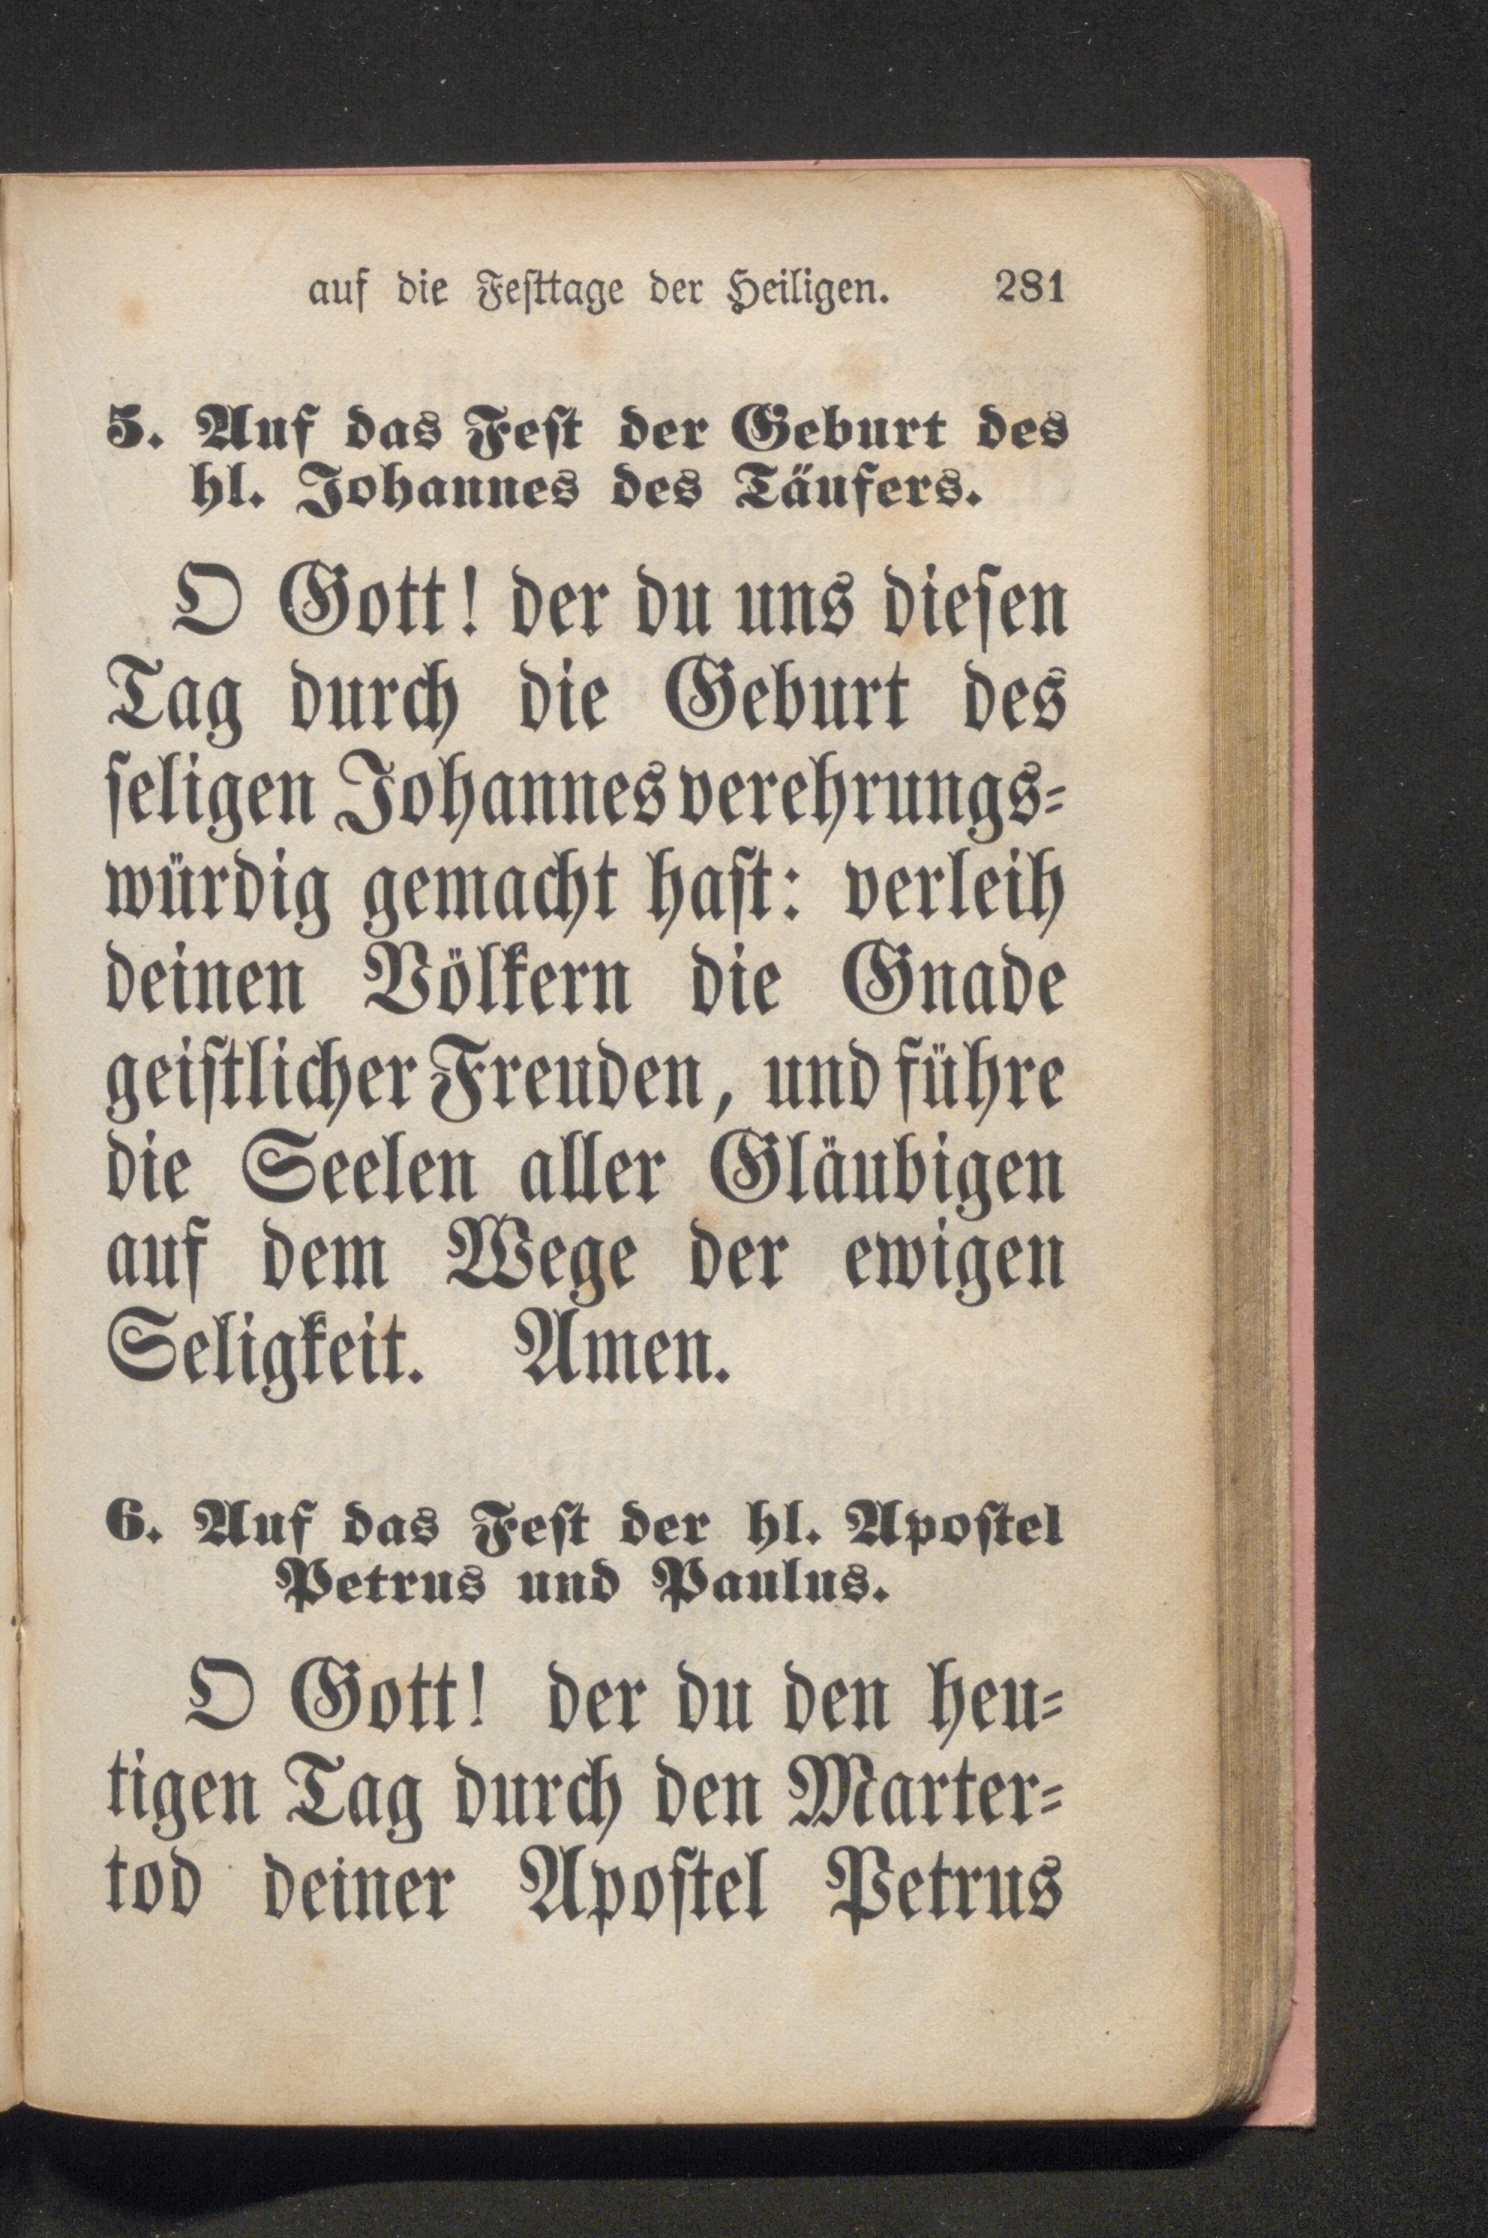 auf die Feſttage der Heiligen. 281
5. Auf das Feſt der Geburt des
hl. Johannes des Täufers.
O Gott! der du uns dieſen
Tag durch die Geburt des
ſeligen Johannes verehrungs⸗
würdig gemacht haſt: verleih
deinen Völkern die Gnade
geiſtlicher Freuden, und führe
die Seelen aller Gläubigen
auf dem Wege der ewigen
Seligkeit. Amen.
6. Auf das Feſt der hl. Apoſtel
Petrus und Paulus.
O Gott! der du den heu⸗
tigen Tag durch den Marter⸗
tod deiner Apoſtel Petrus